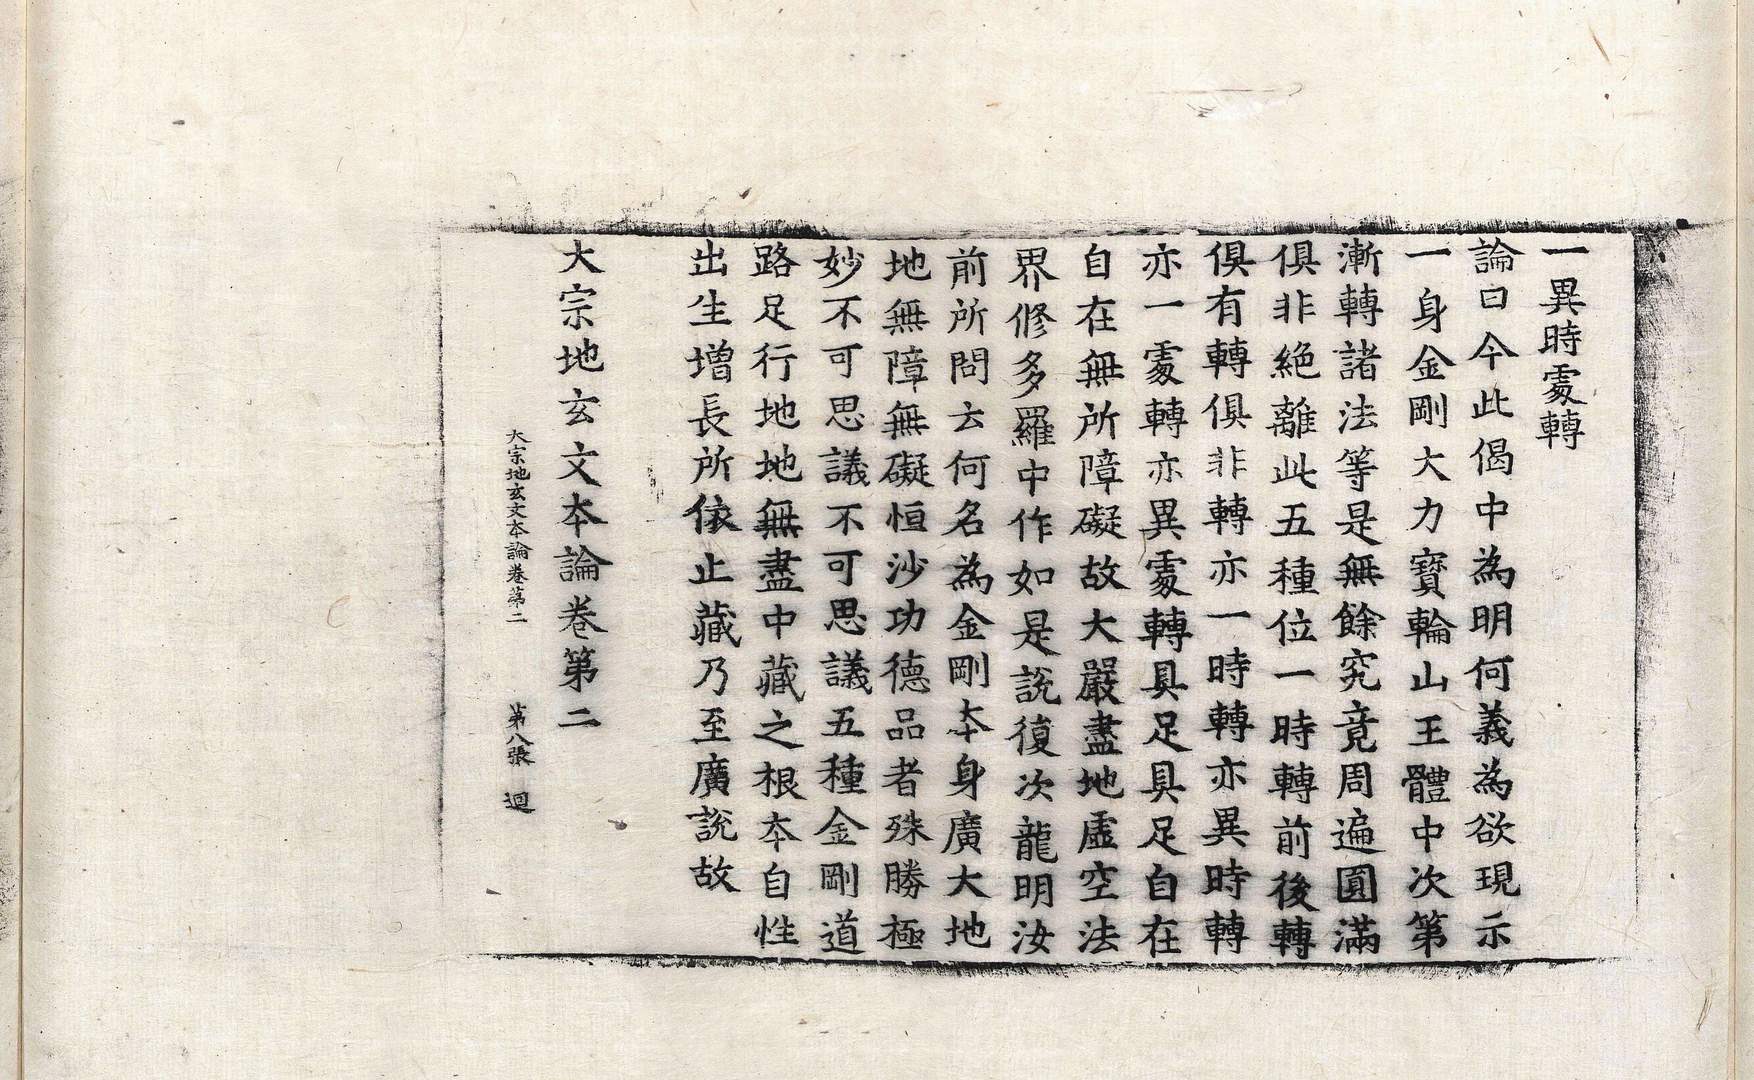 一異時處轉
論曰今此偈中為明何義為欲現示
一身金剛大力寶輪山王體中次第
漸轉諸法等是無餘究竟周遍圓滿
俱非絶離此五種位一時轉前後轉
俱有轉俱非轉亦一時轉亦異時轉
亦一處轉亦異處轉具足具足自在
自在無所障礙故大嚴盡地虛空法
界修多羅中作如是說復次龍明汝
前所問云何名為金剛本身廣大地
地無障無礙恒沙功德品者殊勝極
妙不可思議不可思議五種金剛道
路足行地地無盡中藏之根本自性
出生增長所依止藏乃至廣說故
大宗地玄文本論卷第二
大宗地玄文本論卷第二 第八張 迴